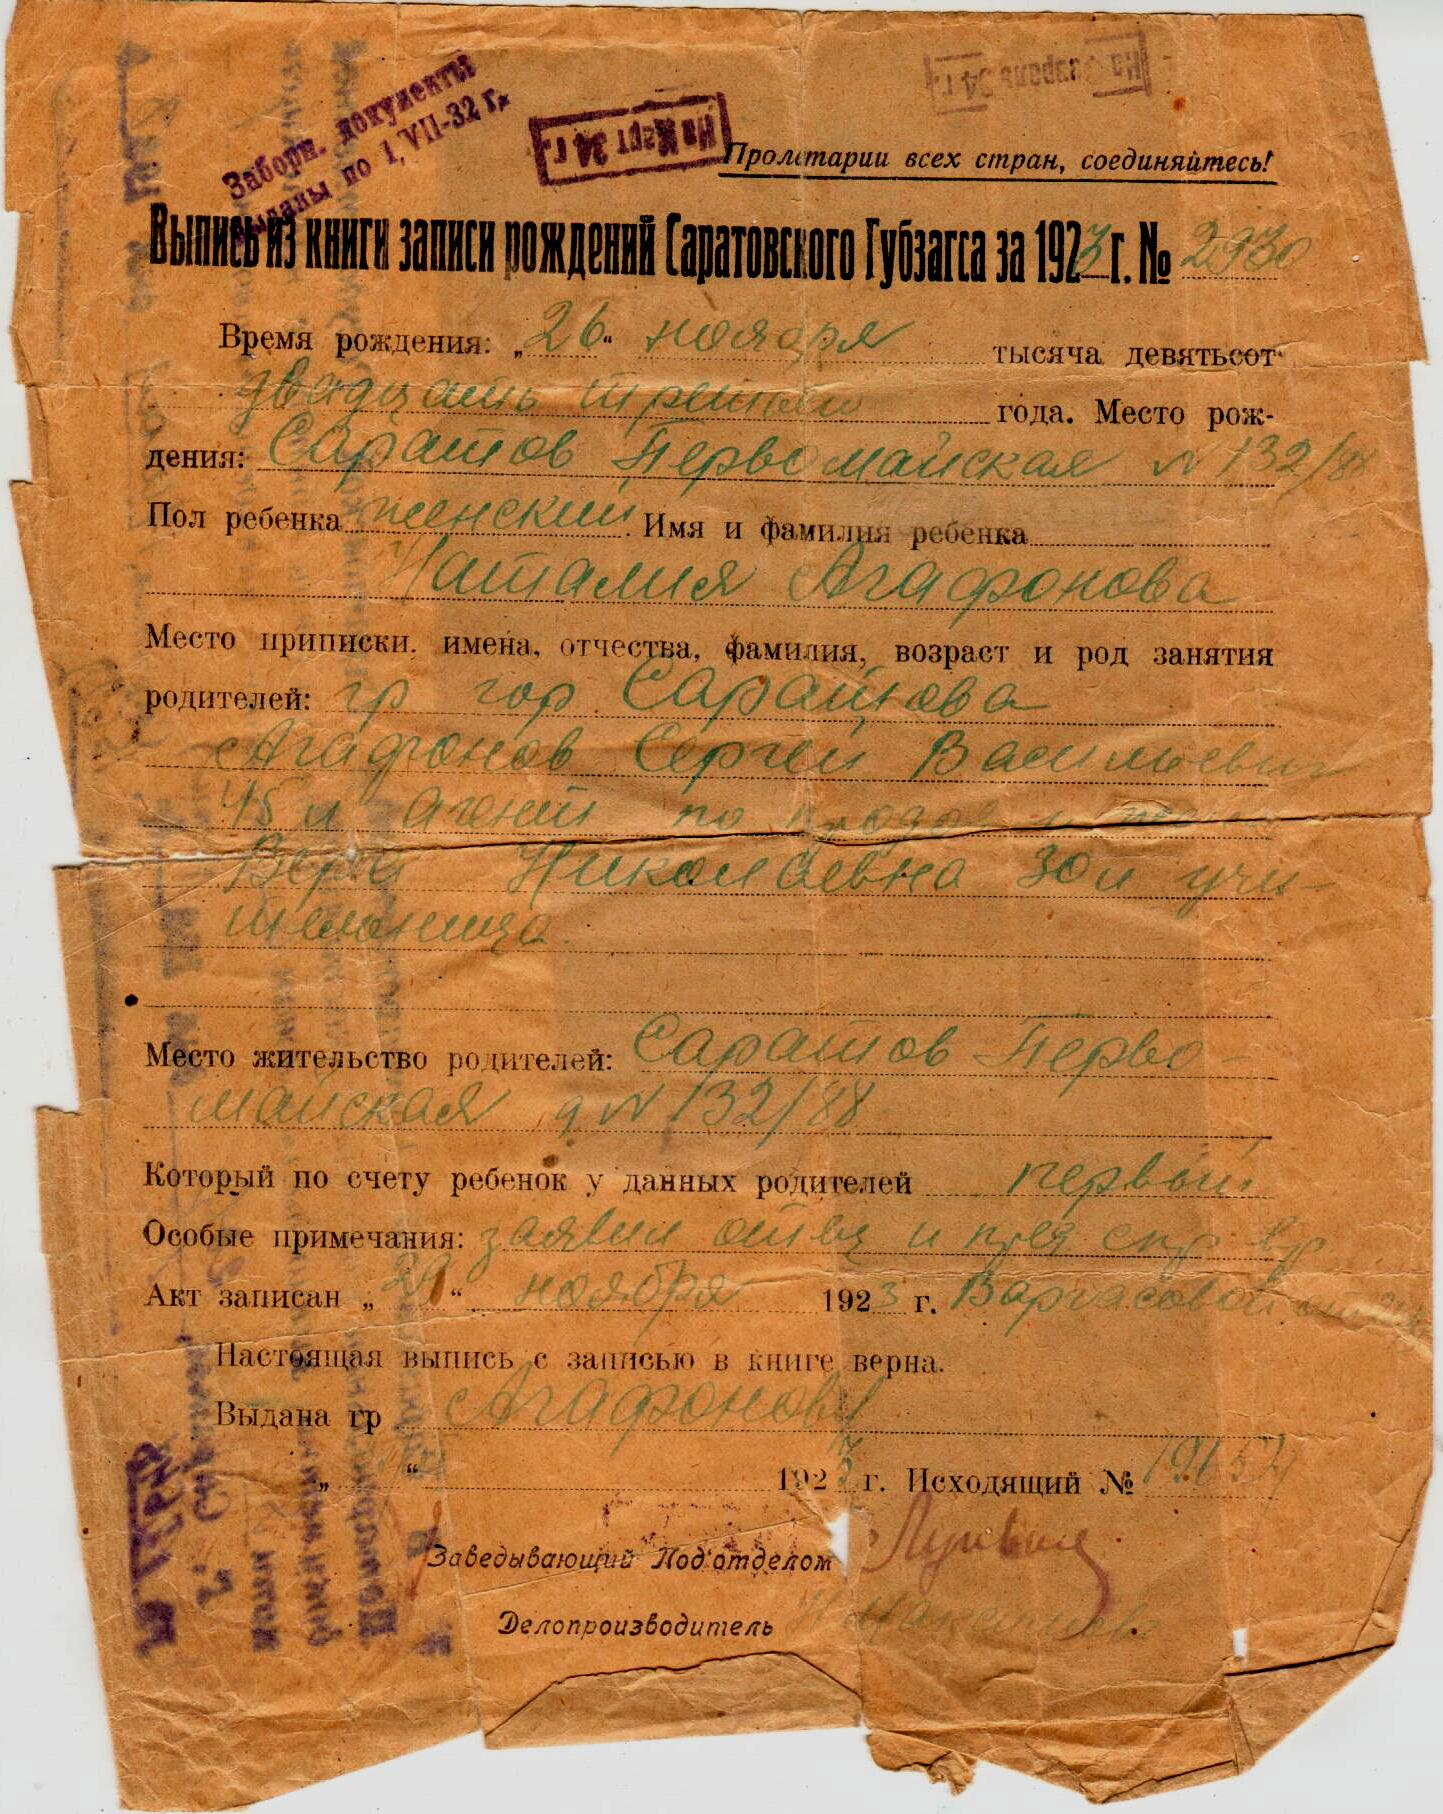 Заборн. документы
выданы по 1, VII-32 г.
На Март 34 г.
На Февраль 34 г.
Пролетарии всех стран, соединяйтесь!
Выпись из книги записи рождений Саратовского Губзагса за 1923 г. № 2930
Время рождения: „26“ ноября тысяча девятьсот
двадцать третьего года. Место рож-
дения: Саратов Первомайская N 132/88
Пол ребенка женский Имя и фамилия ребенка
Наталия Агафонова
Место приписки. имена, отчества, фамилия, возраст и род занятия
родителей: гр гор Саратова
Агафонов Сергей Васильевич
45 л агент по
Вера Николаевна 30 л учи-
тельница.
Место жительство родителей: Саратов Перво-
майская д N 132/88
Который по счету ребенок у данных родителей первый
Особые примечания: заявил отец и
Акт записан „ “ ноября 1923 г.
Настоящая выпись с записью в книге верна.
Выдана гр Агафонову
„ “ 1923 г. Исходящий №
Заведывающий Под'отделом
Делопроизводитель